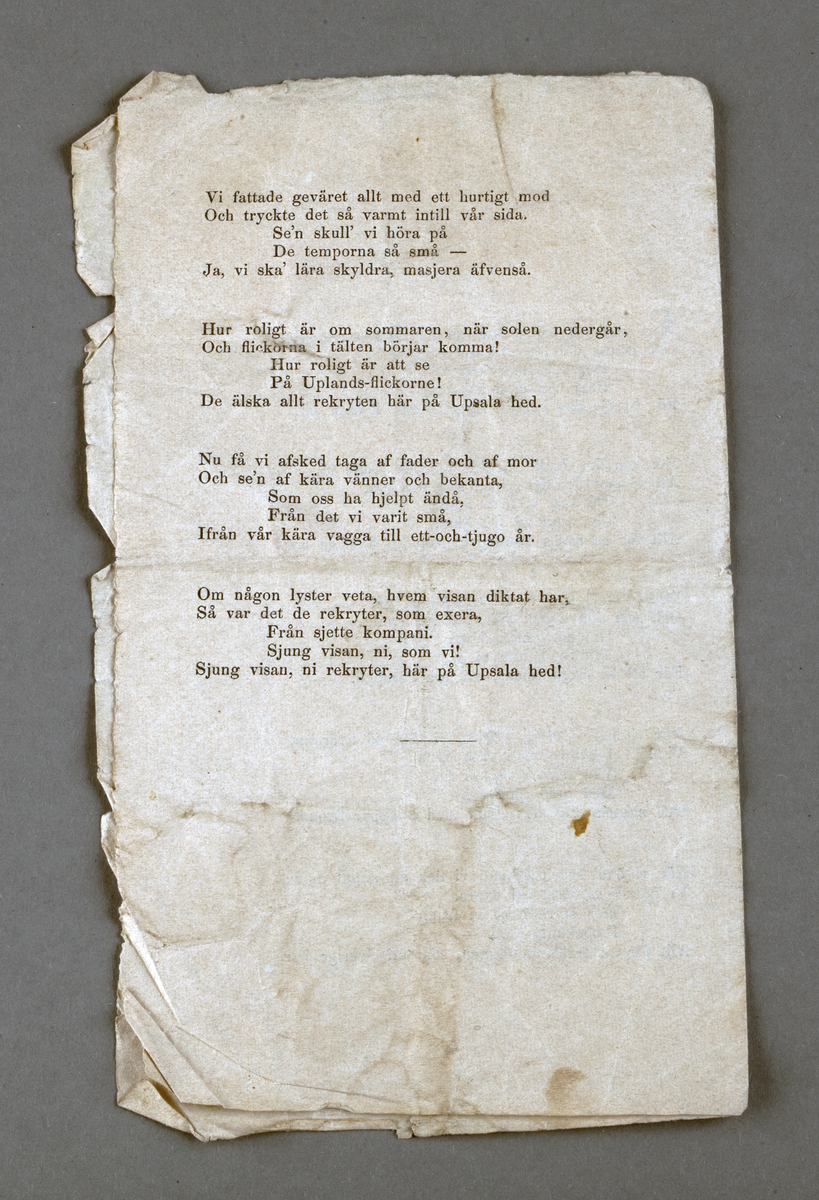 Vi fattade geväret allt med ett hurtigt mod
Och tryckte det så varmt intill vår sida.
Se'n skull' vi höra på
De temporna så små —
Ja, vi ska' lära skyldra, masjera äfvenså.
Hur roligt är om sommaren, när solen nedergår,
Och flickorna i tälten börjar komma!
Hur roligt är att se
På Uplands-flickorne!
De älska allt rekryten här på Upsala hed.
Nu få vi afsked taga af fader och af mor
Och se'n af kära vänner och bekanta,
Som oss ha hjelpt ändå,
Från det vi varit små,
Ifrån vår kära vagga till ett-och-tjugo år.
Om någon lyster veta, hvem visan diktat har,
Så var det de rekryter, som exera,
Från sjette kompani.
Sjung visan, ni, som vi!
Sjung visan, ni rekryter, här på Upsala hed!